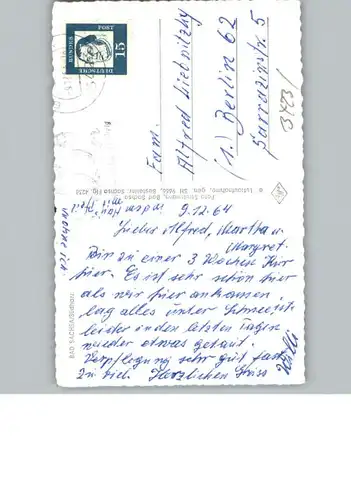 15
DEUTSCHE
BUNDES
POST
Fam.
Alfred Liebnitzky
(1.) Berlin 62
Sarrazinstr. 5
3423/
Foto Schürmann, Bad Sachsa
BAD SACHSA/Südharz
wohne ich.
in dem Haus
9.12.64
Lieber Alfred, Martha u.
Margret.
Bin zu einer 3 Wochen Kur
hier. Es ist sehr schön hier
als wir hier ankamen
lag alles unter Schnee ist
leider in den letzten Tagen
wieder etwas getaut.
Verpflegung sehr gut fast
zu viel. Herzlichen Gruss
Willi